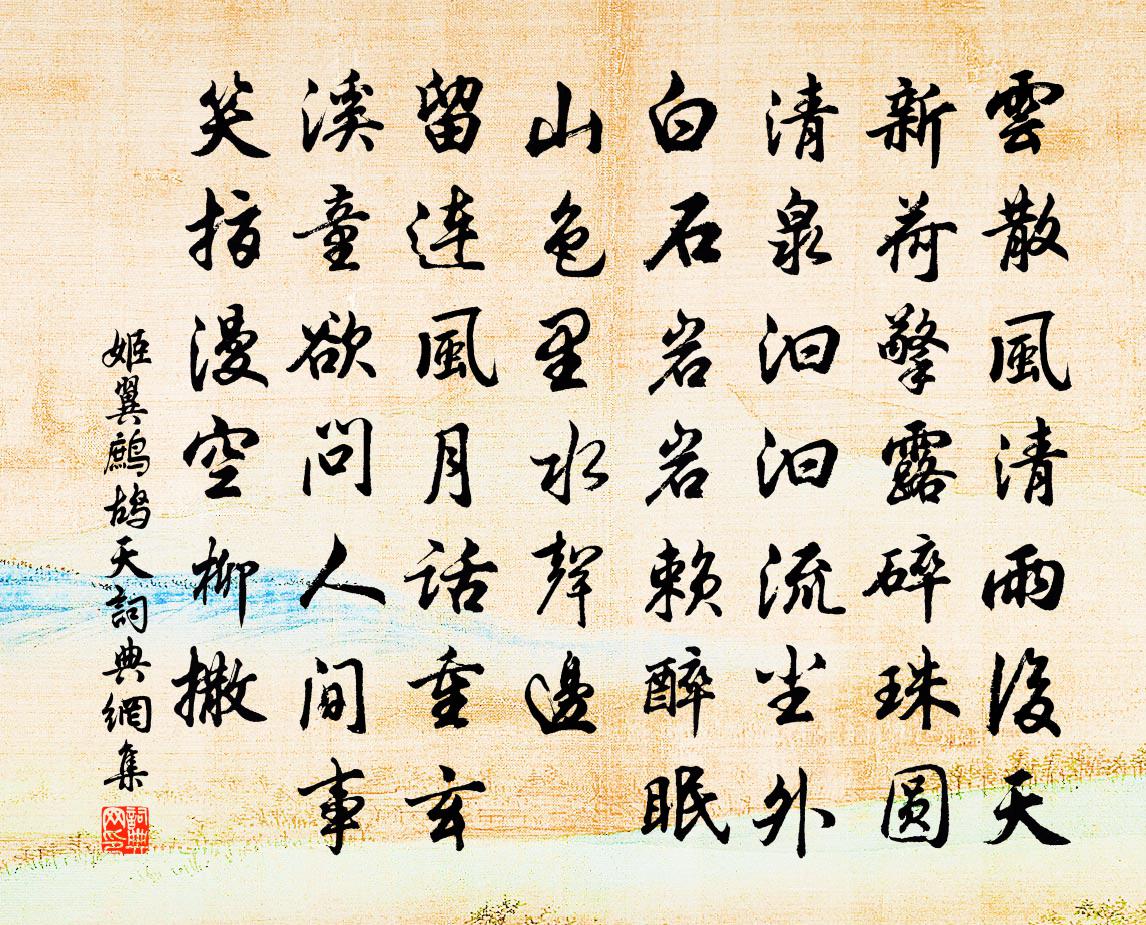 雲散風清雨後天
新荷擎露碎珠圓
清泉汩汩流尘外
白石岩岩赖醉眠
山色里水聲邊
留連風月話重玄
溪童欲問人間事
笑指漫空柳撒
姬翼鷓鴣天詞典網集
詞典網印